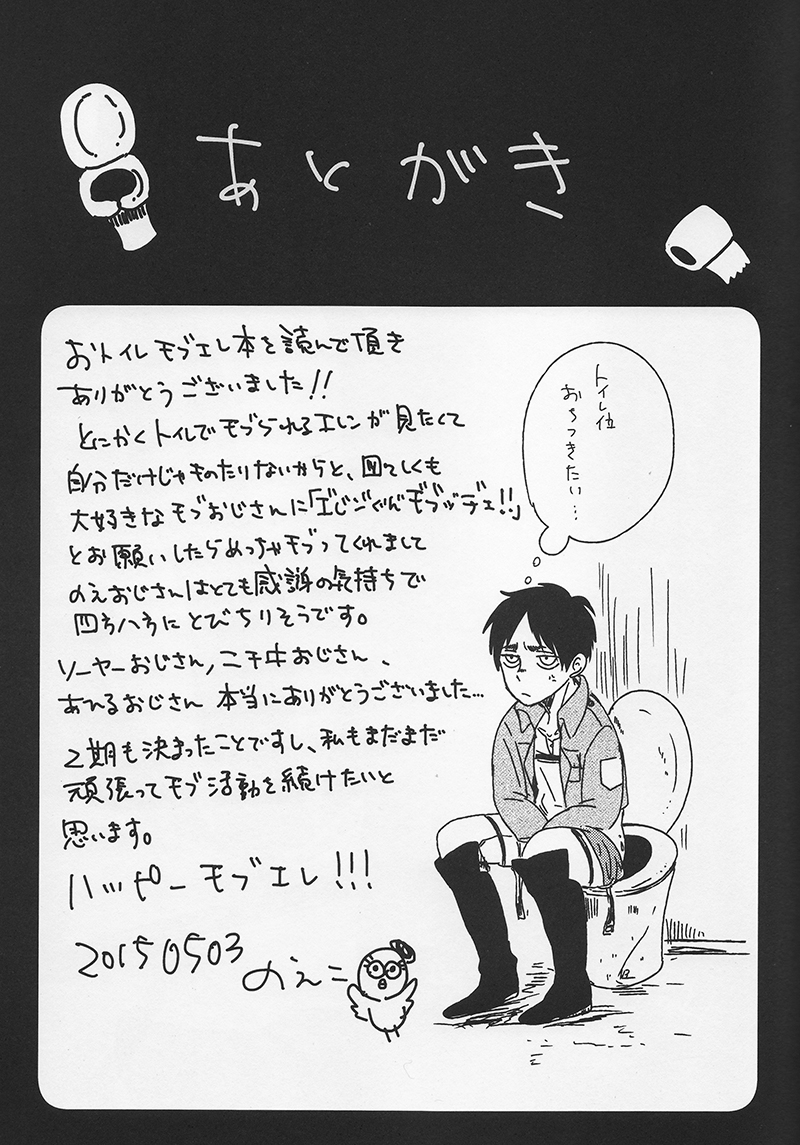 あとがき
おトイレモブエレ本を読んで頂き
ありがとうございました!!
とにかくトイレでモブられるエレンが見たくて
自分だけじゃものたりないからと、図々しくも
大好きなモブおじさんに「
とお願いしたらめっちゃモブってくれまして
のえおじさんはとても感謝の気持ちで
四方八方にとびちりそうです。
ソーヤーおじさん、ニチ半おじさん、
あひるおじさん 本当にありがとうございました…
2期も決まったことですし、私もまだまだ
頑張ってモブ活動を続けたいと
思います。
ハッピーモブエレ!!!
20150503 のえこ
トイレ位
おちつきたい…